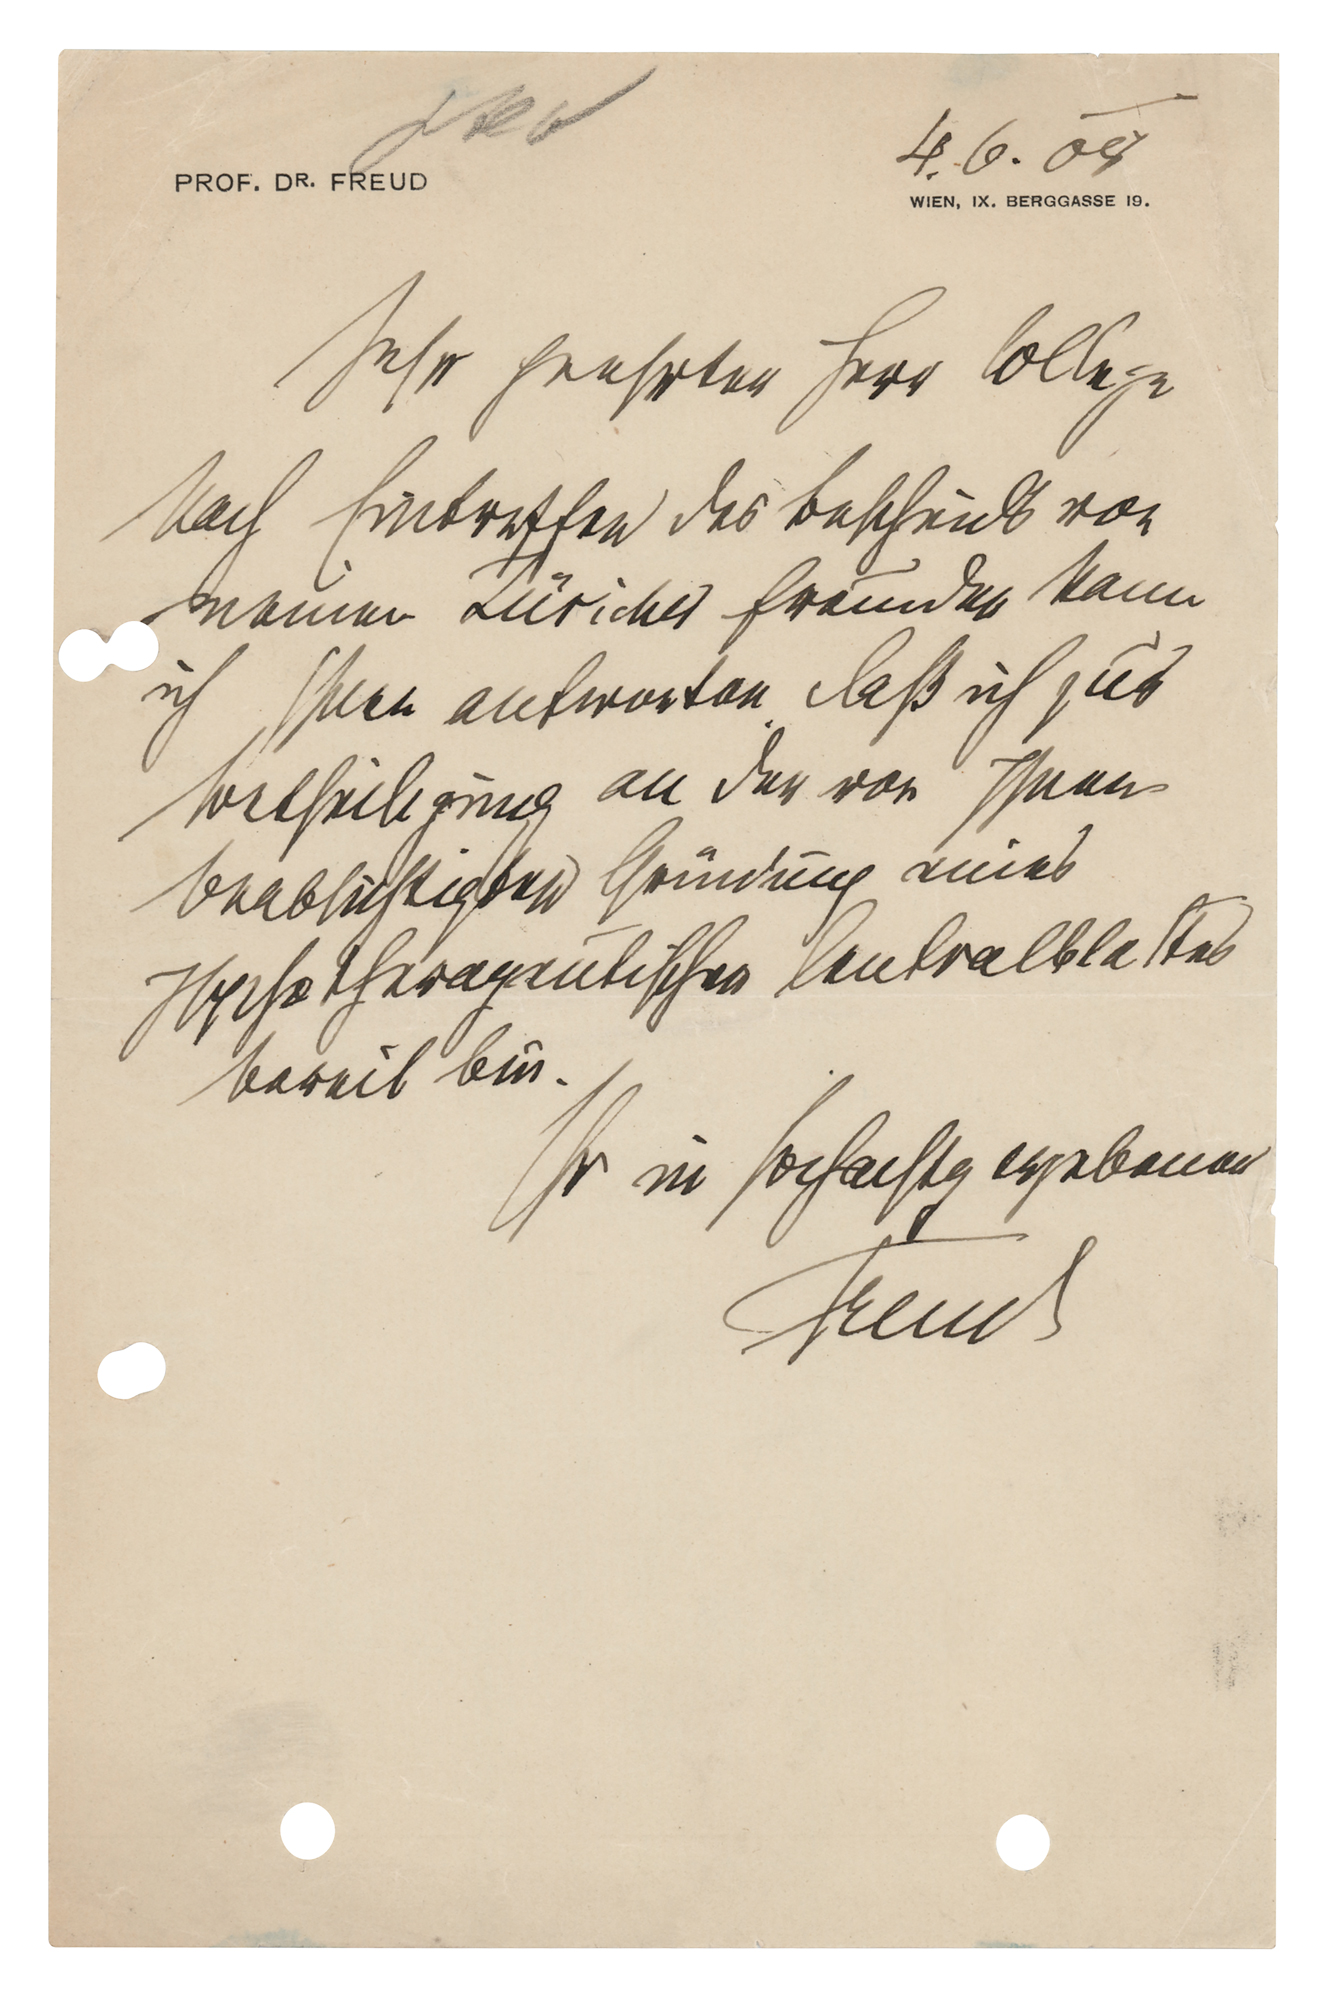 PROF. DR. FREUD
4. 6. 09
WIEN, IX. BERGGASSE 19.
Sehr geehrter Herr College
Nach Eintreffen des Bescheids von
meinen Züricher Freunden kann
ich Ihnen antworten, daß ich zur
Betheiligung an der von Ihnen
beabsichtigten Gründung eines
Psychotherapeutischen Centralblattes
bereit bin.
Ihr in Hochachtg ergebener
Freud